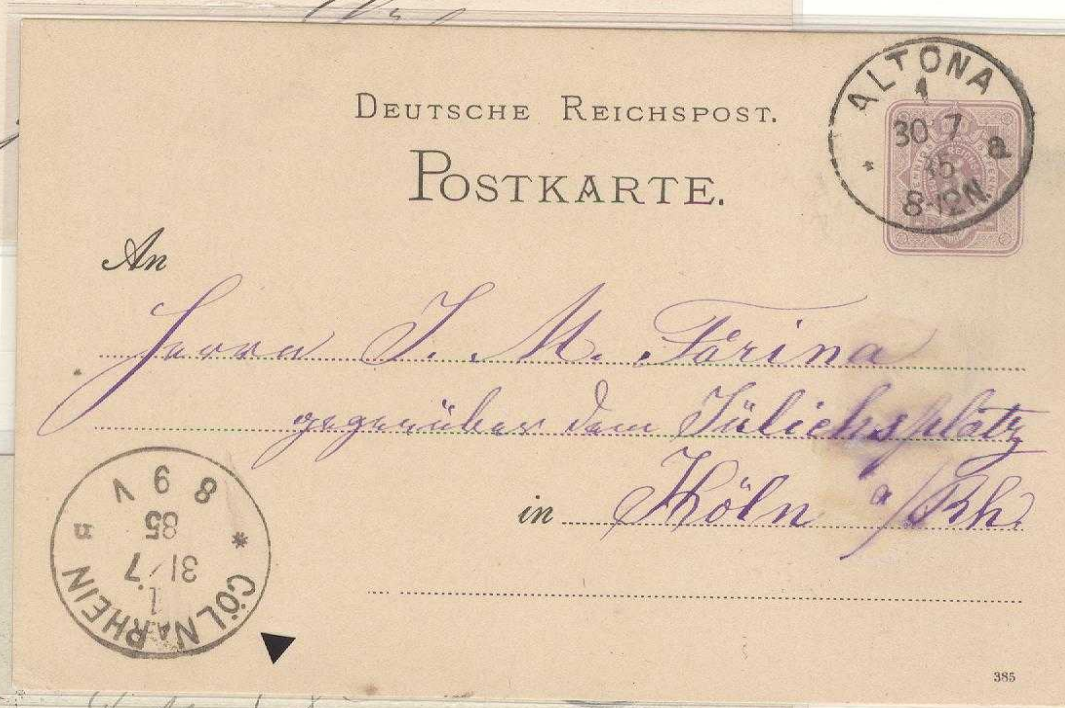 DEUTSCHE REICHSPOST.
POSTKARTE.
ALTONA
1
30 7
85
8-12N.
a
*
An
Herrn J. M. Farina
gegenüber dem Jülichsplatz
in Köln a/Rh.
CÖLN A. RHEIN
1
31/7
85
8 9 V
*
n
385